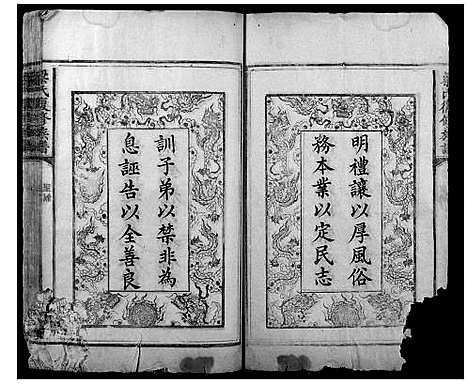 明禮讓以厚風俗
務本業以定民志
訓子弟以禁非為
息誣告以全善良
梁氏復修族譜